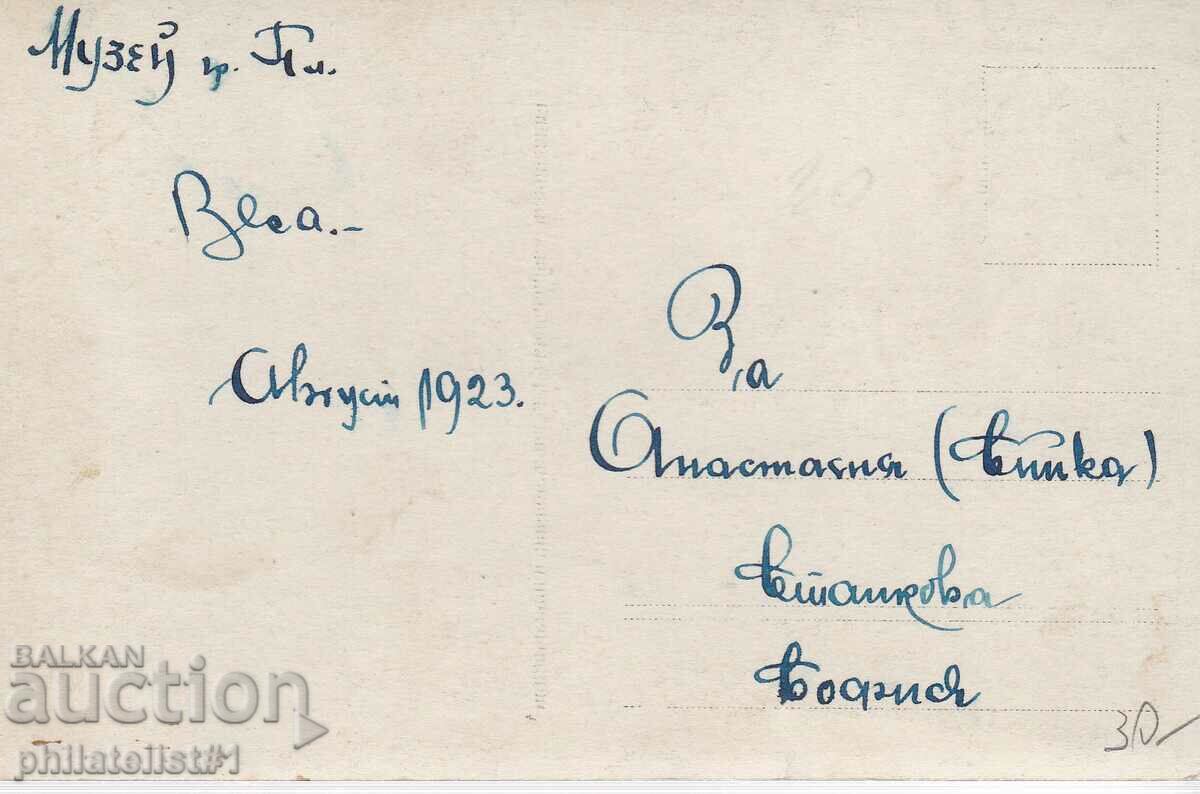 Музей гр. Пл.
Веса.-
Август 1923.
20
За
Анастасия (Ситка)
Станкова
София
30/
BALKAN
auction
philatelist#1